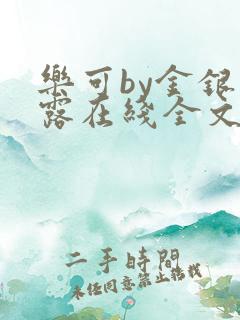 樂可by金銀
露在綫全文
二手時間
未经同意禁止转载